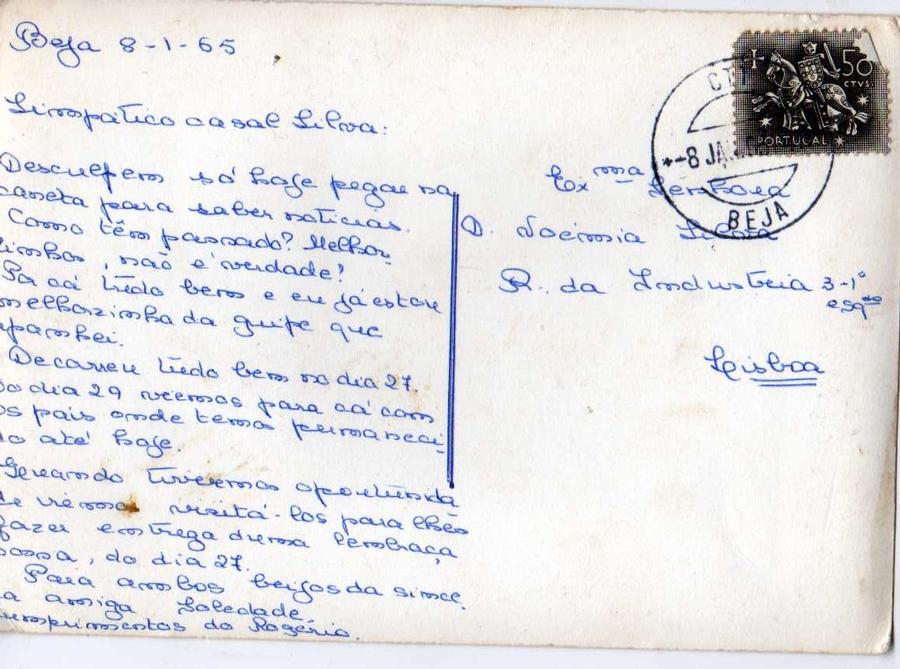 Beja 8-1-65
Simpático casal Silva:
Desculpem só hoje pegar na
caneta para saber notícias.
Como têm passado? Melhor
zinhos, não é verdade!
Por cá tudo bem e eu já estou
melhorzinha da gripe que
apanhei.
Decorreu tudo bem no dia 27.
No dia 29 viemos para cá com
os pais onde temos permaneci-
do até hoje.
Quando tivermos oportunida
de viremos visitá-los para lhes
fazer entrega duma lembraça
nossa, do dia 27.
Para ambos beijos da since
ra amiga Soledade.
Cumprimentos do Rogério.
50
CTVS.
PORTUGAL
CTT
8 JAN
BEJA
Exma Senhora
D. Noémia Silva
R. da Industria 3-1º
esqdo
Lisboa